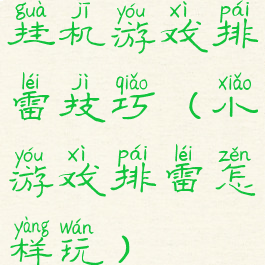 guà jī yóu xì pái
挂机游戏排
léi jì qiǎo xiǎo
雷技巧（小
yóu xì pái léi zěn
游戏排雷怎
yàng wán
样玩）